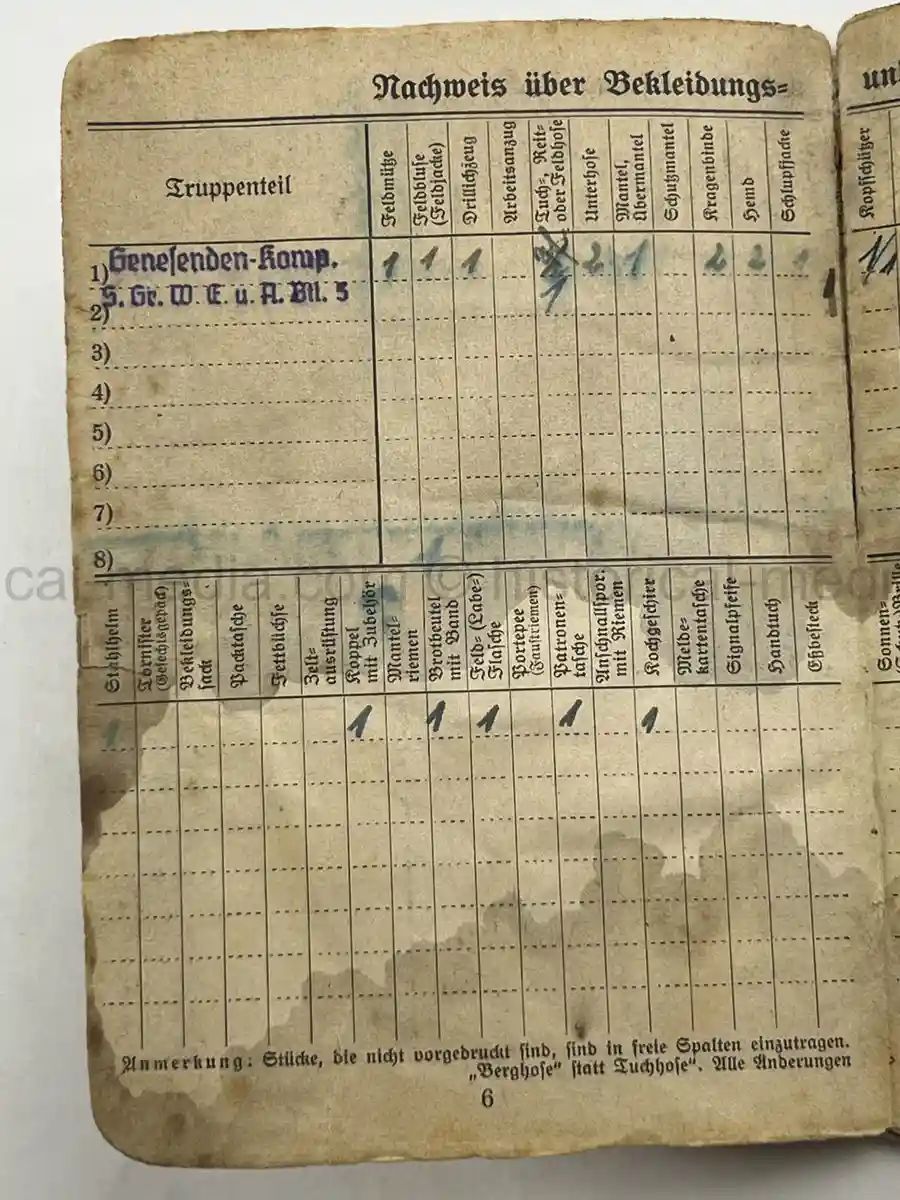 Nachweis über Bekleidungs=
un
Truppenteil
Feldmütze
Feldbluse
(Feldjacke)
Drillichzeug
Arbeitsanzug
Tuch=, Reit=
oder Feldhose
Unterhose
Mantel,
Übermantel
Schutzmantel
Kragenbinde
Hemd
Schlupfjacke
Kopfschützer
1) Genesenden-Komp. 1 1 1 2 2 1 2 2 1
S. Gr. W. E. u. A. Btl. 5 1
2)
3)
4)
5)
6)
7)
8)
Stahlhelm
Tornister
(Gefechtsgepäck)
Bekleidungs=
sack
Packtasche
Fettbüchse
Zelt=
ausrüstung
Koppel
mit Zubehör
Mantel=
riemen
Brotbeutel
mit Band
Feld= (Labe=)
Flasche
Portepee
(Faustriemen)
Patronen=
tasche
Anschnallspor.
mit Riemen
Kochgeschirr
Melde=
kartentasche
Signalpfeife
Handtuch
Eßbesteck
Sonnen=
1 1 1 1 1 1
Anmerkung: Stücke, die nicht vorgedruckt sind, sind in freie Spalten einzutragen.
„Berghose“ statt Tuchhose“. Alle Änderungen
6